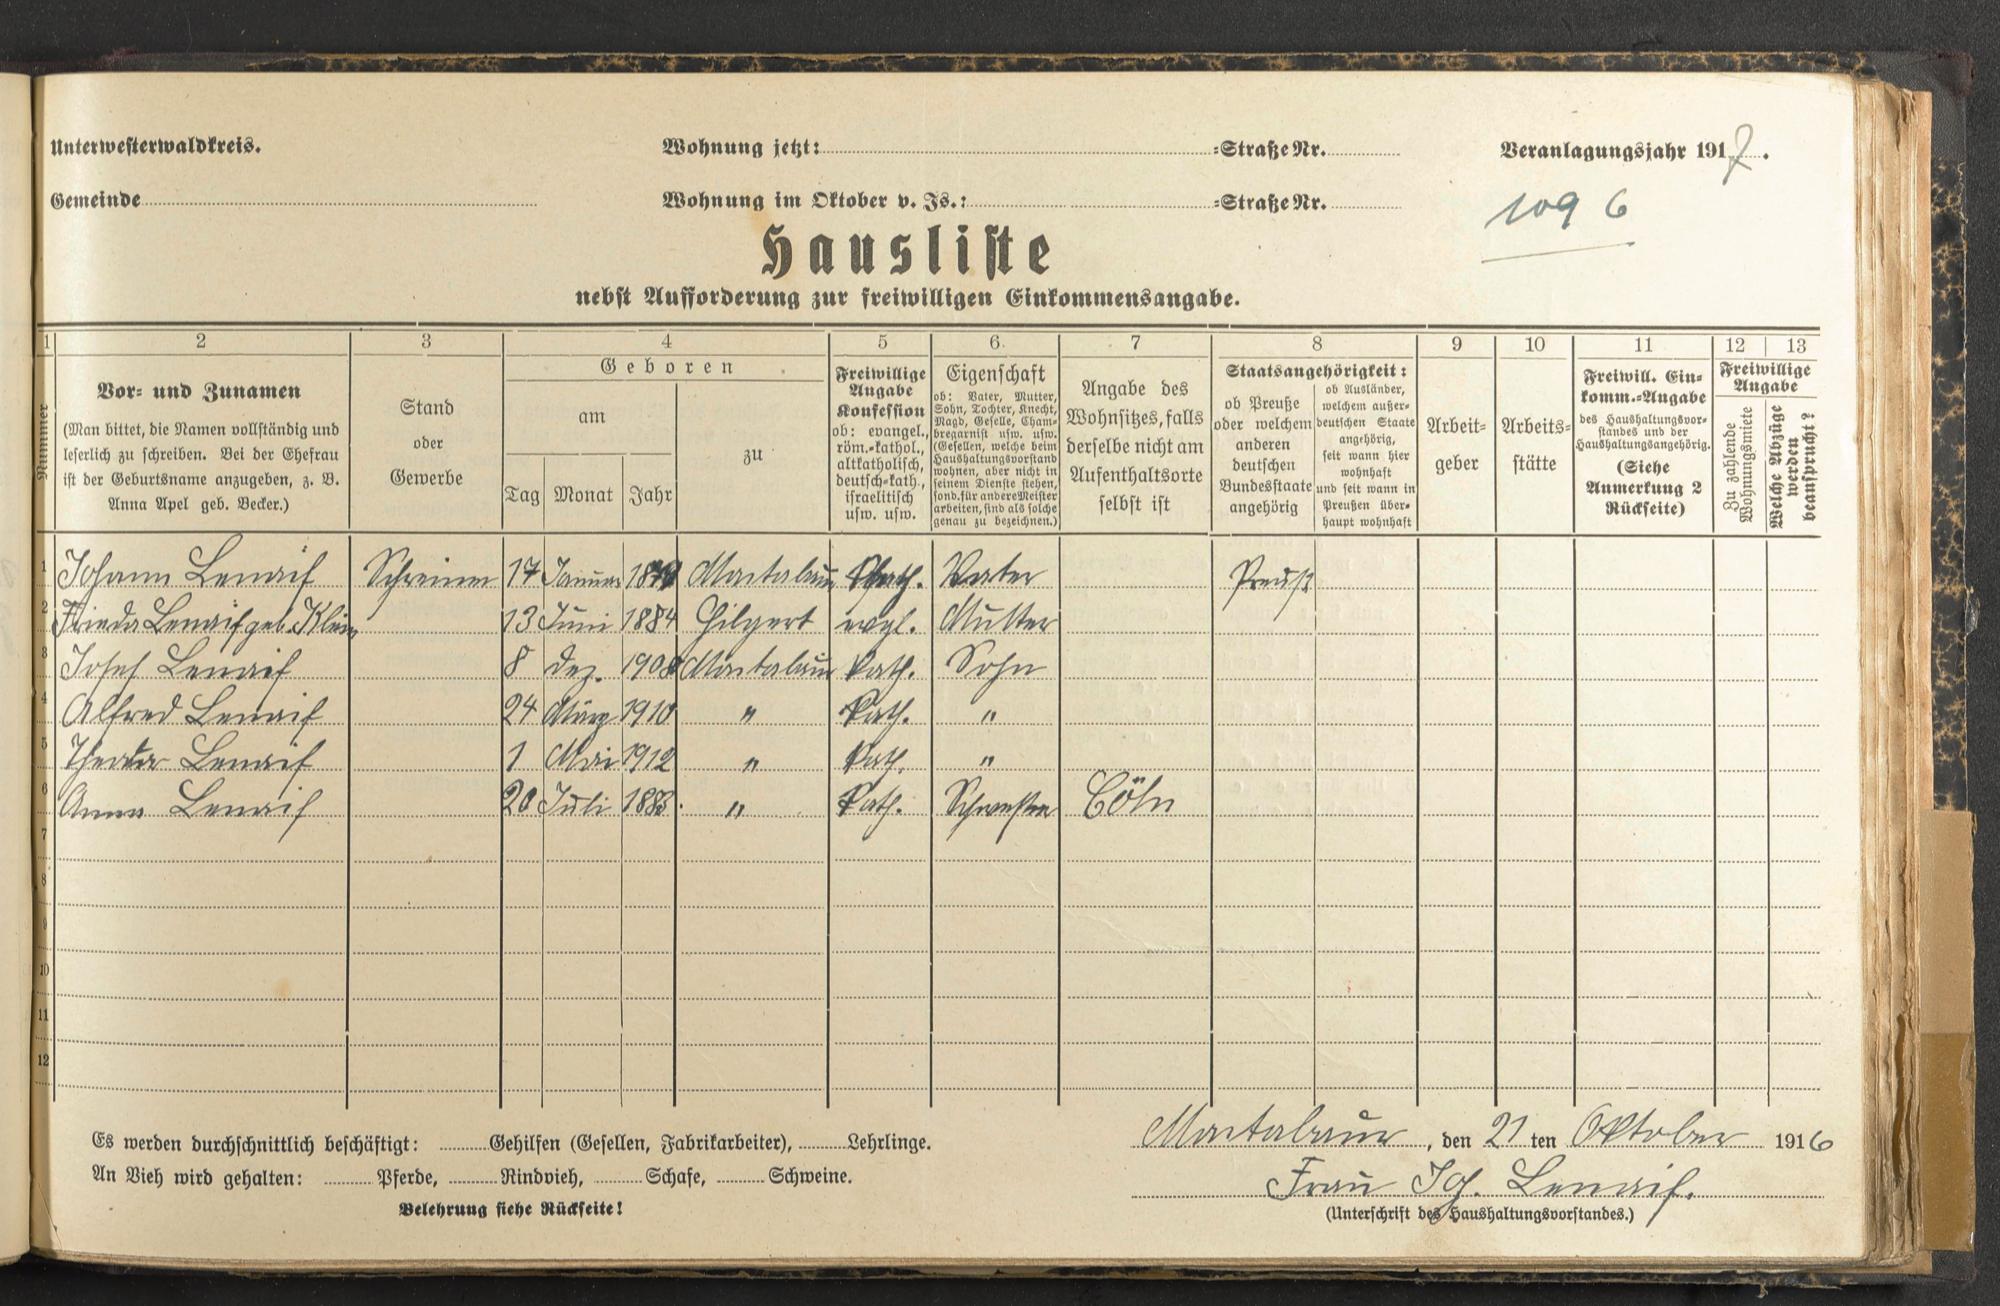 Unterwesterwaldkreis. Wohnung jetzt: =Straße Nr. Veranlagungsjahr 1917.
Gemeinde Wohnung im Oktober v. Js.: =Straße Nr.
109 6
Hausliste
nebst Aufforderung zur freiwilligen Einkommensangabe.
1 2 3 4 5 6. 7 8 9 10 11 12 13
Nummer
Vor- und Zunamen
(Man bittet, die Namen vollständig und
leserlich zu schreiben. Bei der Ehefrau
ist der Geburtsname anzugeben, z. B.
Anna Apel geb. Becker.)
Stand
oder
Gewerbe
Geboren
am
Tag Monat Jahr
zu
Freiwillige
Angabe
Konfession
ob: evangel.,
röm.-kathol.,
altkatholisch,
deutsch-kath.,
israelitisch
usw. usw.
Eigenschaft
ob: Vater, Mutter,
Sohn, Tochter, Knecht,
Magd, Geselle, Cham-
bregarnist usw. usw.
(Gesellen, welche beim
Haushaltungsvorstand
wohnen, aber nicht in
seinem Dienste stehen,
sond. für andere Meister
arbeiten, sind als solche
genau zu bezeichnen.)
Angabe des
Wohnsitzes, falls
derselbe nicht am
Aufenthaltsorte
selbst ist
Staatsangehörigkeit:
ob Preuße
oder welchem
anderen
deutschen
Bundesstaate
angehörig
ob Ausländer,
welchem außer-
deutschen Staate
angehörig,
seit wann hier
wohnhaft
und seit wann in
Preußen über-
haupt wohnhaft
Arbeit-
geber
Arbeits-
stätte
Freiwill. Ein-
komm.-Angabe
des Haushaltungsvor-
standes und der
Haushaltungsangehörig.
(Siehe
Anmerkung 2
Rückseite)
Freiwillige
Angabe
Zu zahlende
Wohnungsmiete
Welche Abzüge
werden
beansprucht?
1 Johann Lenaif Schreiner 17 Januar Montabaur Kath. Vater Preuß
2 Frieda Lenaif geb. Klein 13 Juni 1884 Hilgert evgl. Mutter
3 Josef Lenaif 8 Dez. Montabaur Kath. Sohn
4 Alfred Lenaif 24 März 1910 " Kath. "
5 Theodor Lenaif 1 Mai 1912 " Kath. "
6 Anna Lenaif 20 Juli 1883. " Kath. Schwester Cöln
7
8
9
10
11
12
Es werden durchschnittlich beschäftigt: Gehilfen (Gesellen, Fabrikarbeiter), Lehrlinge.
An Vieh wird gehalten: Pferde, Rindvieh, Schafe, Schweine.
Belehrung siehe Rückseite!
Montabaur, den 21 ten Oktober 1916
Frau Joh. Lenaif.
(Unterschrift des Haushaltungsvorstandes.)